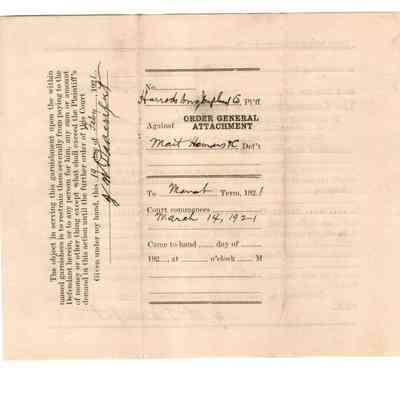 The object in serving this garnishment upon the within
named garnishees is to restrain them severally from paying to the
Defendant herein, or to any person for him, any sum or amount
of money or other thing except what shall exceed the Plaintiff's
demand in this action until the further order of this Court
Given under my hand, this 19 day of Feby, 1921
No.
Pl'ff
Against ORDER GENERAL
ATTACHMENT
Def't
To March Term, 1921
Court convenes
March 14, 1921
Came to hand ...... day of
192..., at ...... o'clock ...... M